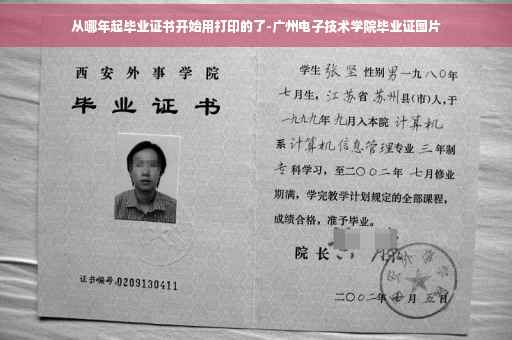 从哪年起毕业证书开始用打印的了-广州电子技术学院毕业证图片
西安外事学院
毕业证书
证书编号:0209130411
学生 张坚 性别男一九八〇年
七月生,江苏省苏州县(市)人,于
一九九九年九月入本院 计算机
系 计算机信息管理专业 三 年制
专科学习,至二〇〇二年 七月修业
期满,学完教学计划规定的全部课程,
成绩合格,准予毕业。
院长
二〇〇二年 月五日